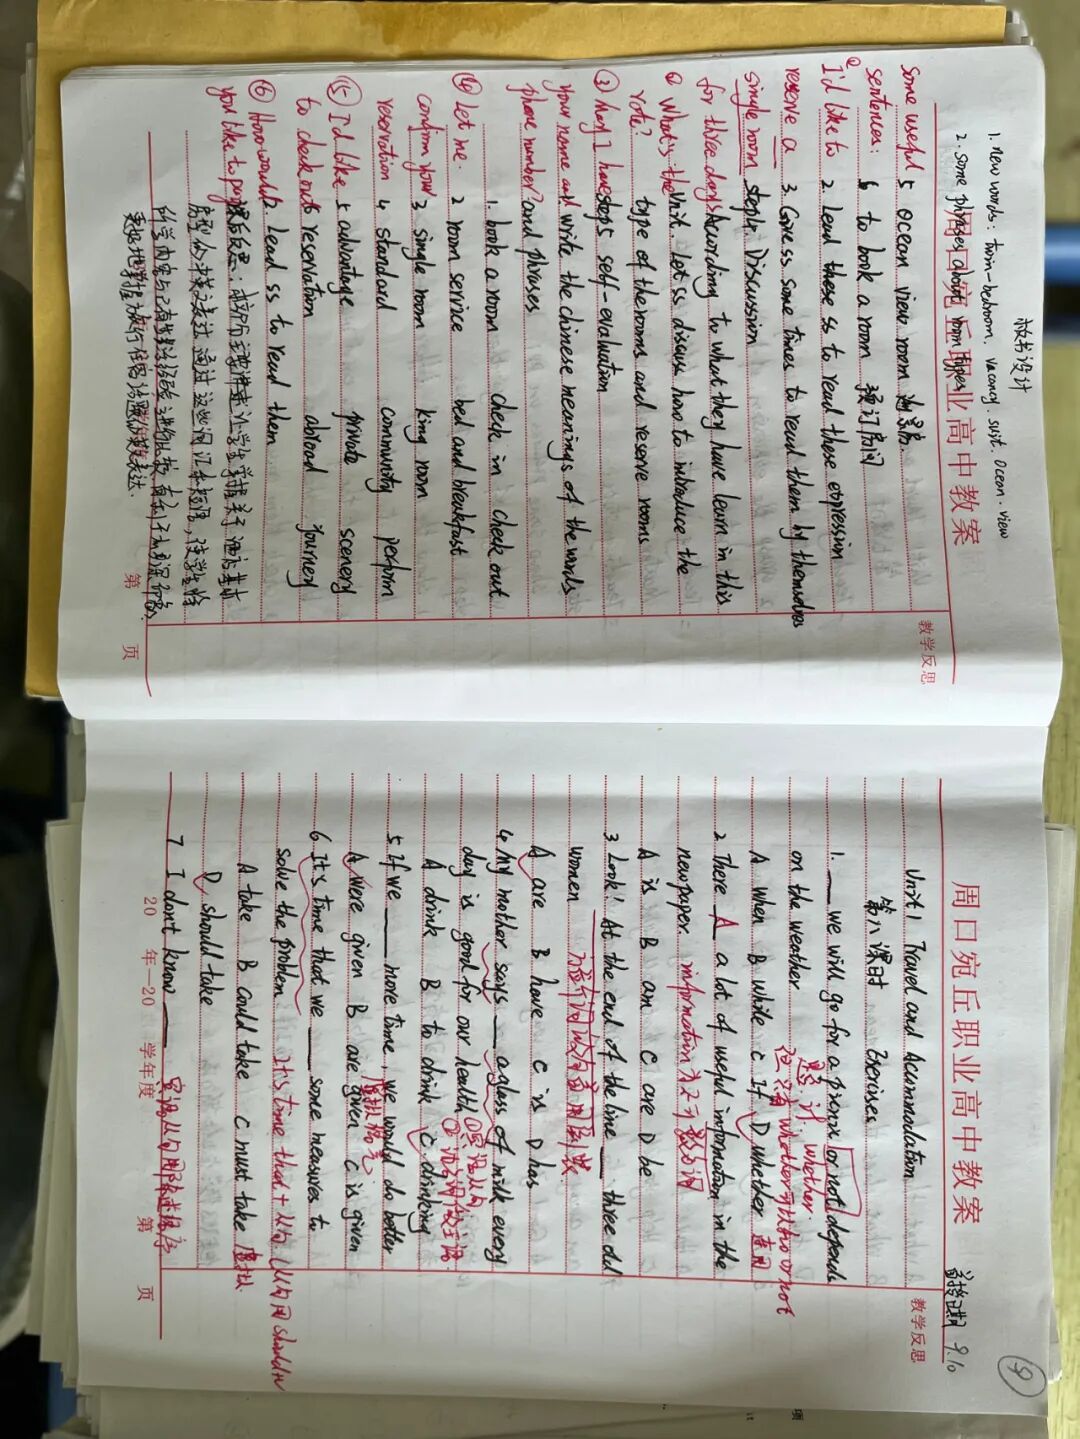 板书设计
1. new words: twin-bedroom. vacancy. suit. Ocean. view
2. some phrases about room types
周口宛丘职业高中教案
教学反思
some useful
sentences:
I'd like to
reserve a
single room
for three days.
What's the
rate?
③ May I have
your name and
phone number?
④ Let me
confirm your
reservation
⑤ I'd like
to check out
⑥ How would
you like to pay
5 ocean view room 海景房.
6 to book a room 预订房间
2. Lead these ss to read these expression
3. Give ss some times to read them by themselves
step4. Discussion
According to what they have learn in this
unit. Let ss discuss how to introduce the
type of the rooms and reserve rooms
step5 self-evaluation
write the chinese meanings of the words
and phrases
1. book a room check in check out
2 room service bed and breakfast
3 single room king room
4 standard community perform
5 advantage private scenery
6 reservation abroad journey
2. Lead ss to read them
课后反思:
第 页
周口宛丘职业高中教案
9.10
9
教学反思
Unit 1 Travel and Accommodation
第八课时 Exercises
1. ___ we will go for a picnic or not depends
on the weather
A when B while C If D whether
whether.
whether可以加or not
2 There A a lot of useful information in the
newpaper. information为不可数名词
A is B am C are D be
3 Look! At the end of the line ___ three old
women
A are B have C is D has
4 My mother says ___ a glass of milk every
day is good for our health
①宾语从句
A drink B to drink C drinking
5 If we ___ more time, we would do better
虚拟语气
A were given B are given C is given
6 It's time that we ___ some measures to
solve the problem It's time that + 从句 (从句用should+v
A take B could take C must take 虚拟.
D should take
7 I don't know ___ 宾语从句用陈述语序
20 年—20 学年度 第 页